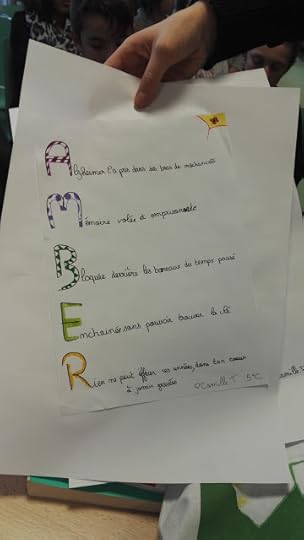 Alzheimer l'a pris dans ses bras de méchanceté
Mémoire volée et emprisonnée
Bloquée derrière les barreaux du temps passé
Enchainée sans pouvoir trouver la clé
Rien ne peut effacer ces années, dans ton cœur
à jamais gravées
Camille T 5°C